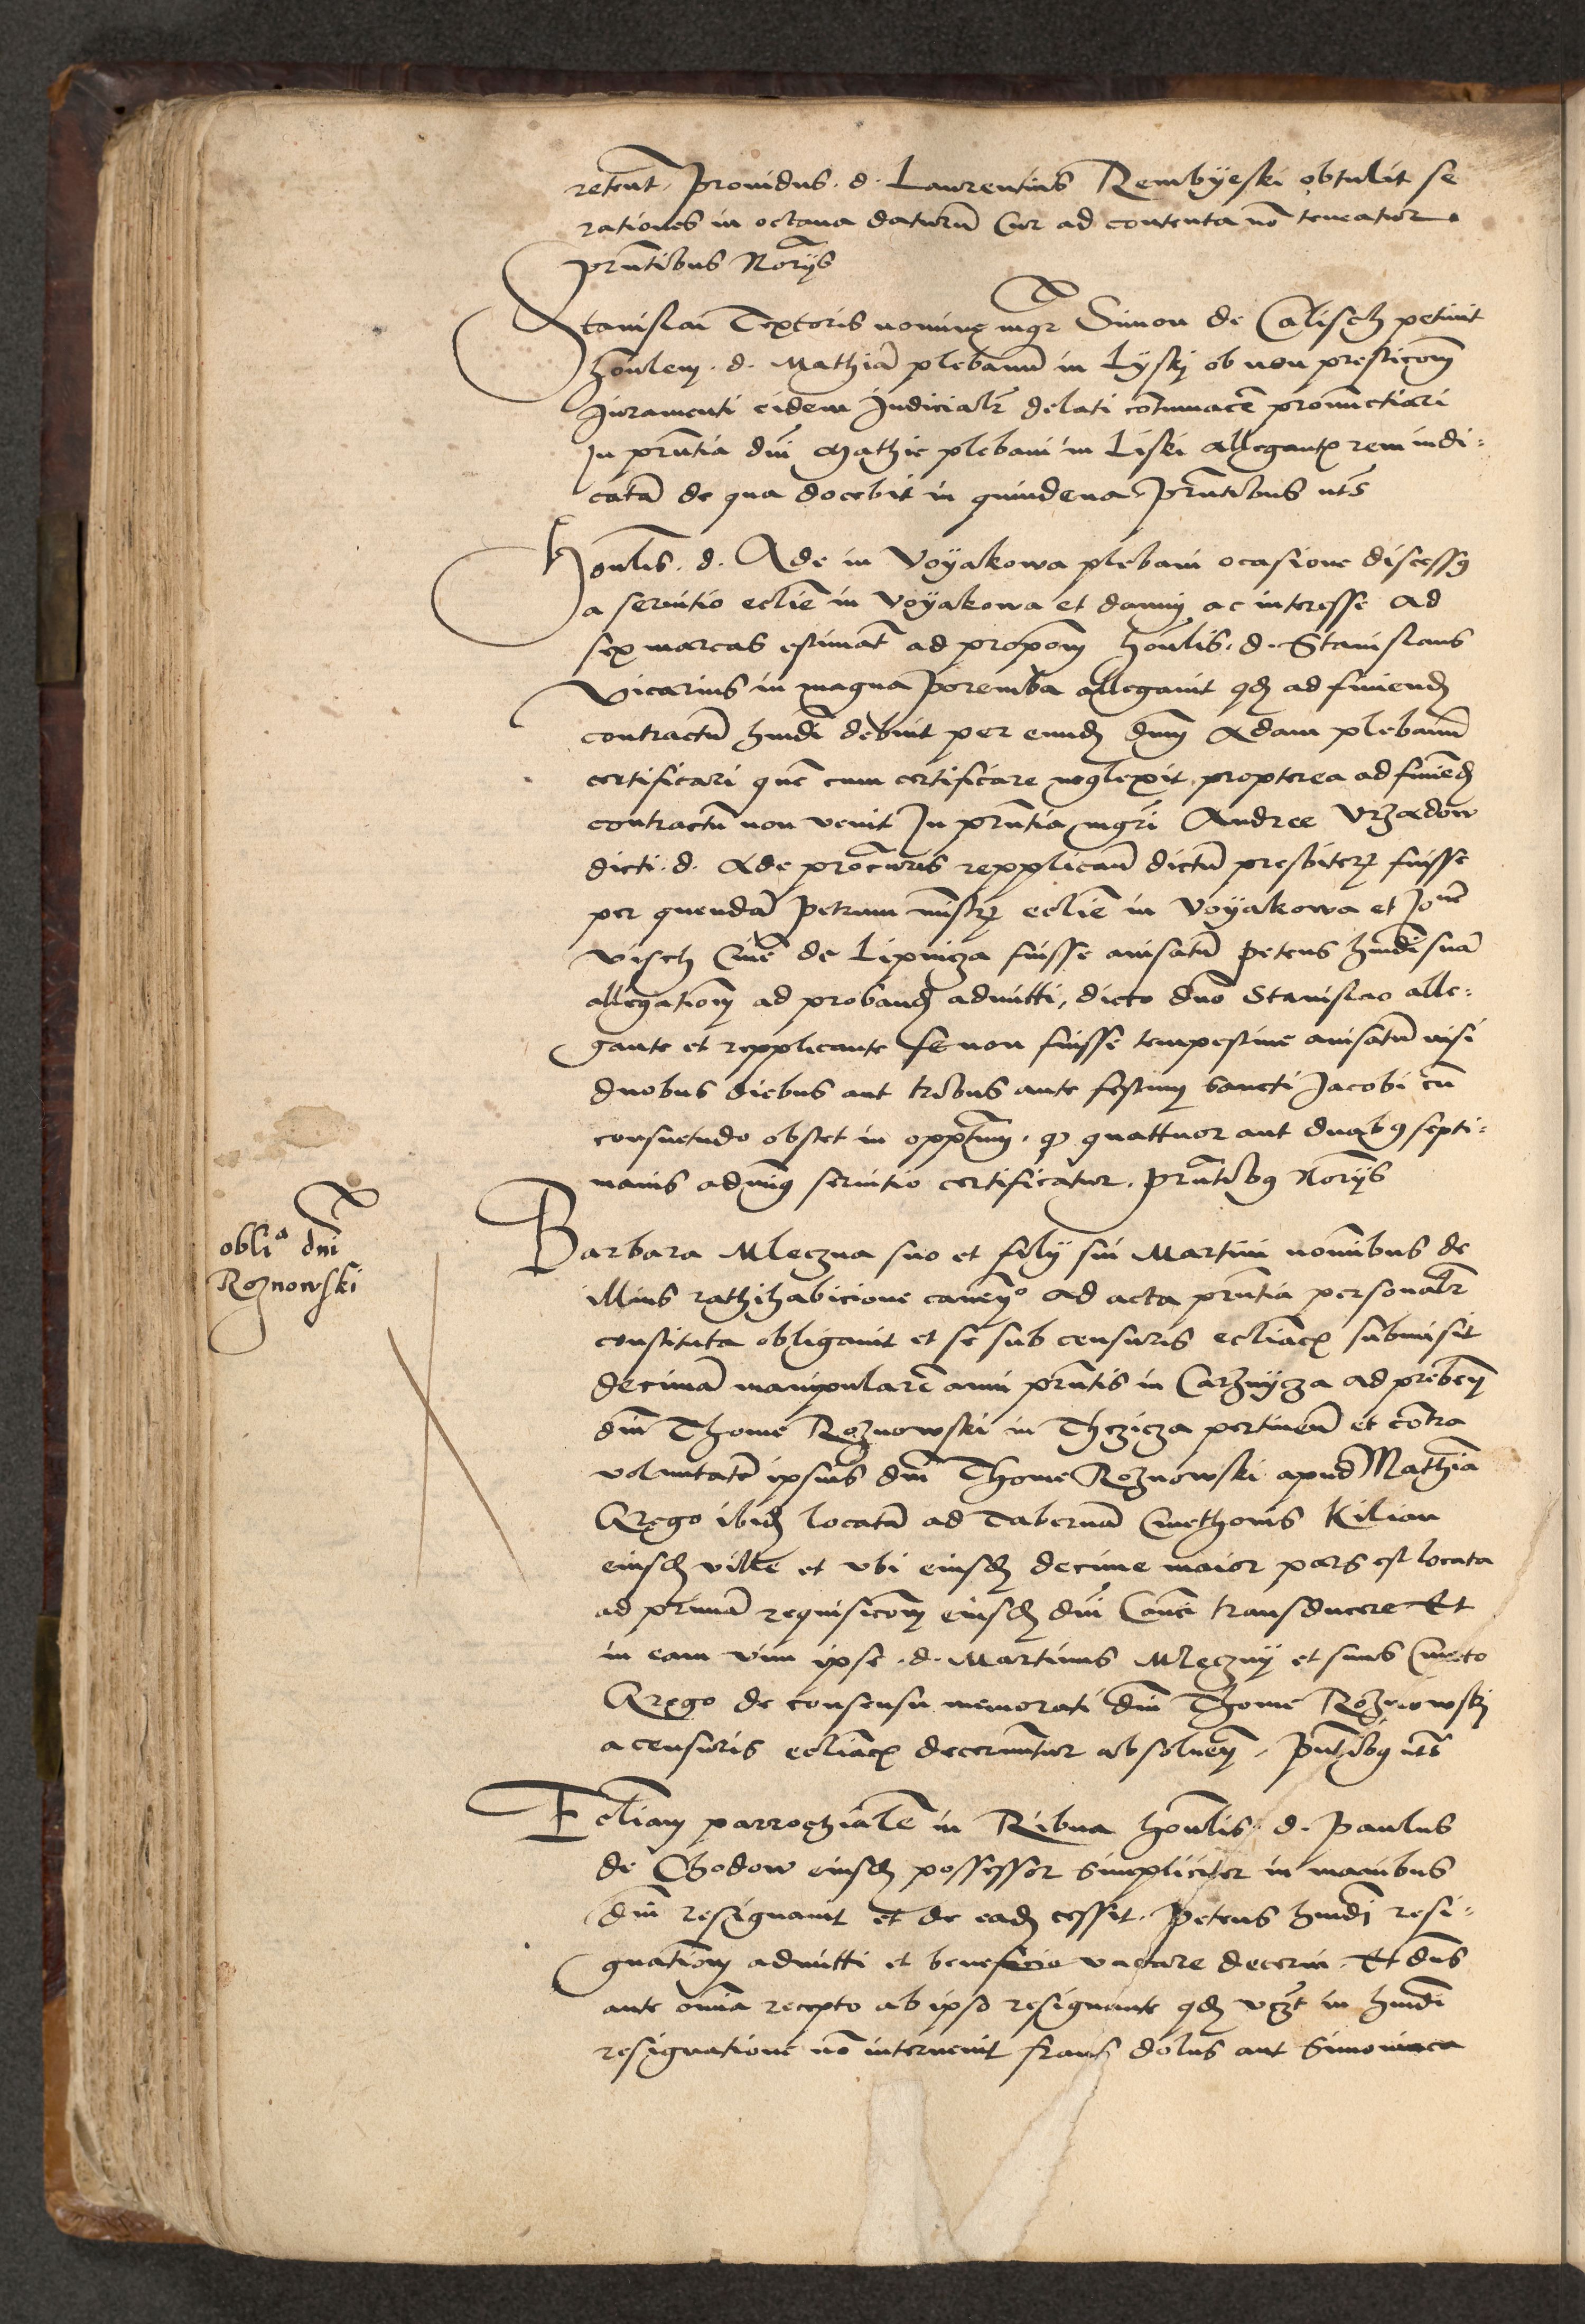 retent. Prouidus d. Laurentius Rembyeski obtulit se
rationes in octaua daturum Cur ad contenta no teneatur
prntibus Noryis
Stanislai Textoris nomine mgr Simon de Calisch petiuit
honlem d. Mathia plebanum in Lyski ob non presticom
Juramenti eidem Judicialr delati contumace pronunctiari
In prntia dni Mathie plebani in Liski allegant rem iudi-
cata de qua docebit in quindena prntibus uts
Honlis d. Ade in Voyakowa plebani ocasione discessus
a seruitio eclie in Voyakowa et damni ac interesse ad
sex marcas estimat ad propom honlis d. Stanislaus
Vicarius in magna Poremba allegauit qd ad finiend
contractu hmdi debuit per eund dnm Adam plebanum
certificari que cum certificare neglexit propterea ad finiend
contractu non venit In prntia mgri Andree Vrzadow
dicti d. Ade procuris repplican dictu presbiter fuisse
per quenda Petrum mistr eclie in Voyakowa et Jone
de Lipnicza fuisse auisatu petens hmdi sua
allegationem ad proband admitti, dicto dno Stanislao alle-
gante et repplicante se non fuisse tempestiue auisatu nisi
duobus diebus aut tribus ante festum sancti Jacobi cu
consuetudo obstet in oppm quattuor aut duabus septi-
manis adminus seruitio certificatur. Prntibus Noryis
obli dni
Roznowski
Barbara Mleczna suo et filij sui Martini nominibus de
illius rathihabicione caueno ad acta prntia personalr
constituta obligauit et se sub censuris ecliacis submisit
decima manipulare anni prntis in Carznycza ad preben
dni Thome Roznowski in Thczicza pertinen et contra
voluntate ipsius dni Thome Roznowski apud Mathia
Grego ibid locata ad Taberna Cmethonis Kilian
eiusd ville et vbi eiusd decime maior pars est locata
ad prima requisicom eiusd dni Canci transducere Et
in eam vim ipse d. Martinus Mleczny et suus Cmeto
Grego de consensu memorati dni Thome Roznowski
a censuris ecliacis decernuntur absoluen. Pntibus uts
Ecliam parrochiale in Ribna honlis d. Paulus
de Chodow eiusd possessor simpliciter in manibus
dni resignauit et de ead cessit. Petens hmdi resi-
gnationem admitti et beneficio vacare decerni. Et dns
ante omia recepto ab ipso resignante qd vczt in hmdi
resignatione no interuenit fraus dolus aut Simoniaca